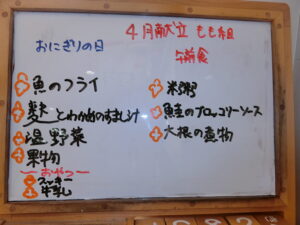 4月献立 もも組
おにぎりの日
午前食
魚のフライ
麩とわかめのすまし汁
温野菜
果物
おやつ
牛乳
米粥
鮭のブロッコリーソース
大根の煮物